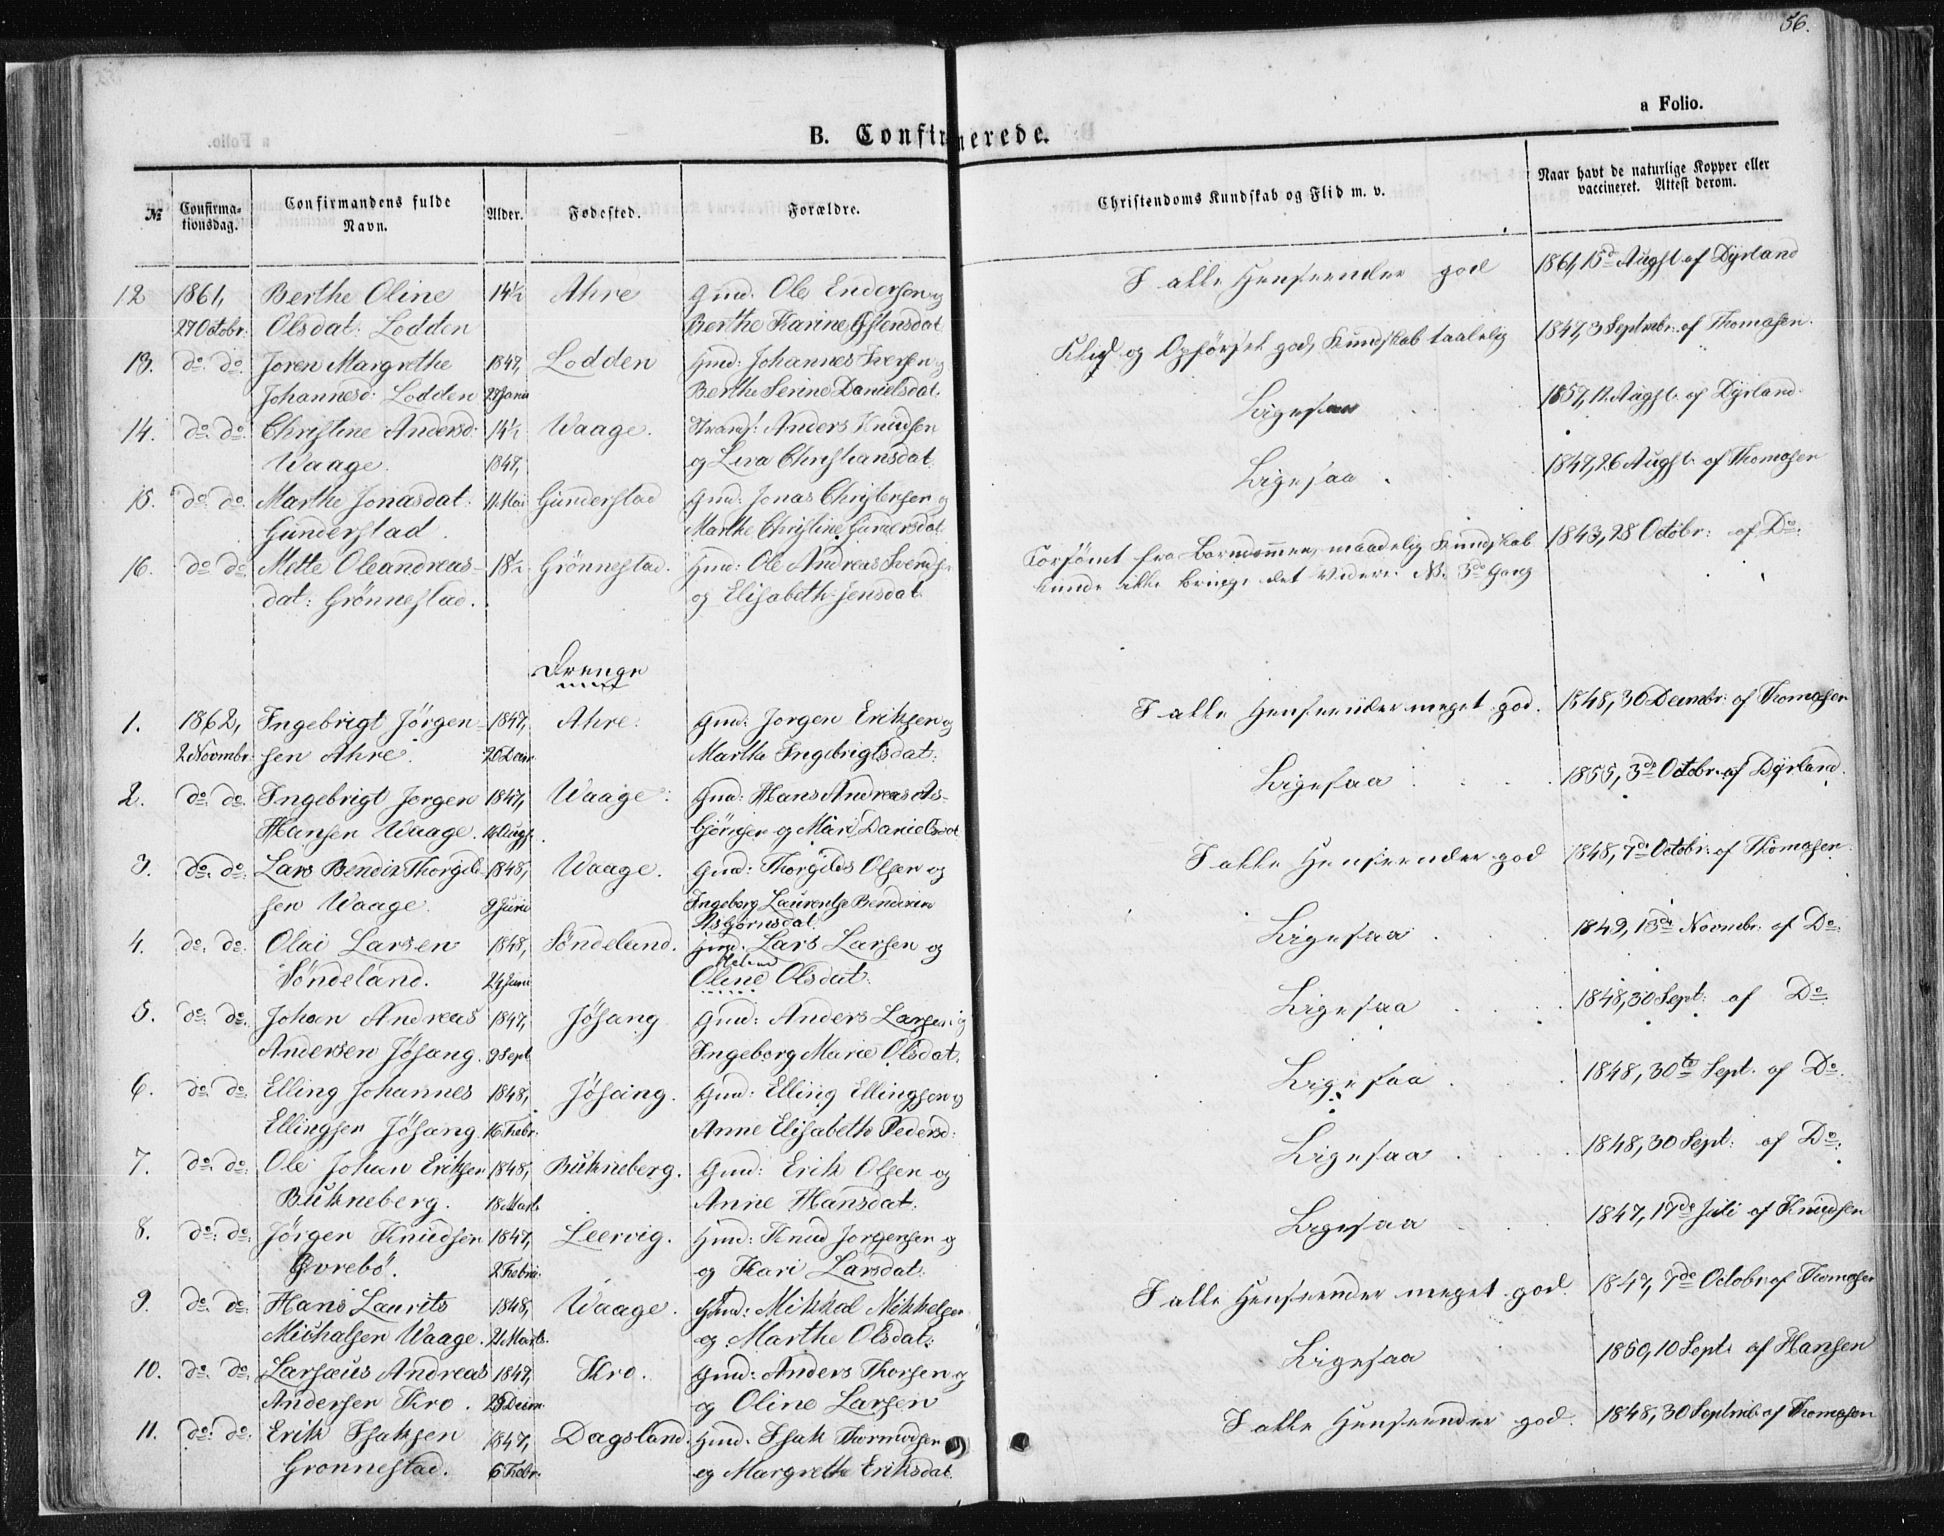 56.
a Folio.
B. Confirmerede.
№ Confirma-tionsdag. Confirmandens fulde Navn. Alder. Fødested. Forældre. Christendoms Kundskab og Flid m. v. Naar havt de naturlige Kopper eller vaccineret. Attest derom.
12 1861, Berthe Oline 14½ Ahre Gmd. Ole Endersen og I alle Henseender god 1861, 15d Augst af Dyrland
27 Octobr. Olsdat: Lodden Berthe Karine Østensdat
13. do. do. Joren Margrethe 1847, Lodden Hmd: Johannes Iversen og Flid og Opførsel god, Kundskab taalelig 1847, 3 Septmbr. af Thomasen.
Johannesd: Lodden 27 Janu Berthe Serine Danielsdat.
14. do. do. Christine Andersd 14½ Waage. Strands: Anders Knudsen Ligesaa 1857, 12 Augst. af Dyrland.
Waage. 1847, og Liva Christiansdat.
15. do. do. Marthe Jonasdat: 11 Mai Gunderstad Gmd: Jonas Christensen og Ligesaa 1847, 26 Augst. af Thomasen
Gunderstad. Marthe Christine Gundersdat.
16. do. do. Mette Oleandreas- 18½ Grönnestad. Hmd: Ole Andreas Svends. Forsömt fra Barndommen, maadelig Kundskab 1843, 28 Octobr: af Do:
dat: Grönnestad. og Elisabeth Jensdat. kunde ikke bringe det videre. NB. 3de Gang
Drenge
1. 1862, Ingebrigt Jörgen- 1847, Ahre. Gmd: Jorgen Eriksen og I alle Henseender meget god. 1848, 30 Decmbr: af Thomasen
2 Novmbr. sen Ahre. 26 Marthe Ingebrigtsdat:
2. do. do. Ingebrigt Jørgen 1847, Waage: Gmd: Hans Andreas As- Ligesaa 1855, 3de Octobr. af Dyrland.
Hansen Waage. 14 Augs. björnsen og Mari Danielsdat
3. do. do. Lars Bendix Thorgils- 1848, Waage. Gmd: Thorgils Olsen og I alle Henseender god 1848, 7de Octobr. af Thomasen.
sen Waage. 9 Juni Ingeborg Laurentze
Asbjörnsdat.
4. do. do. Olai Larsen 1848, Söndeland. Hmd. Lars Larsen og Ligesaa 1849, 13de Novmbr. af Do:
Helene
Söndeland. 24 Juni Oline Olsdat:
5. do. do. Johan Andreas 1847, Jösang Gmd: Anders Larsen og Ligesaa 1848, 30 Sept: af Do:
Andersen Jösang. 9 Sept. Ingeborg Marie Olsdat.
6. do. do. Elling Johannes 1848, Jösang. Gmd: Elling Ellingsen og Ligesaa 1848, 30te Sept. af Do.
Ellingsen Jösang. 16 Febr: Anne Elisabeth Pedersd:
7. do. do. Ole Johan Eriksen 1848, Bukneberg. Gmd: Erik Olsen og Ligesaa 1848, 30 Sept: af Do:
Bukneberg. 18 Marts Anne Hansdat:
8. do. do. Jörgen Knudsen 1847, Leervig. Hmd: Knud Jorgensen og Ligesaa 1847, 17de Juli af Knudsen
Øvrebö. 2 Febru. og Kari Larsdat.
9. do. do. Hans Laurits 1848, Waage. Gmd: Mikkal Mikkelsen I alle Henseender meget god. 1847, 7de Octobr. af Thomasen
Michalsen Waage. 21 Marts. og Marthe Olsdat:
10. do. do. Larsæus Andreas 1847, Kro. Gmd: Anders Thorsen og Ligesaa 1850, 10 Sept: af Hansen
Andersen Kro. og Oline Larsen
11. do. do. Erik Isaksen 1847, Dagsland. Hmd. Isak Thormodsen I alle Henseender god. 1848, 30 Septmb. af Thomasen
Gronnestad. 6 Febr. og Margrethe Eriksdat.